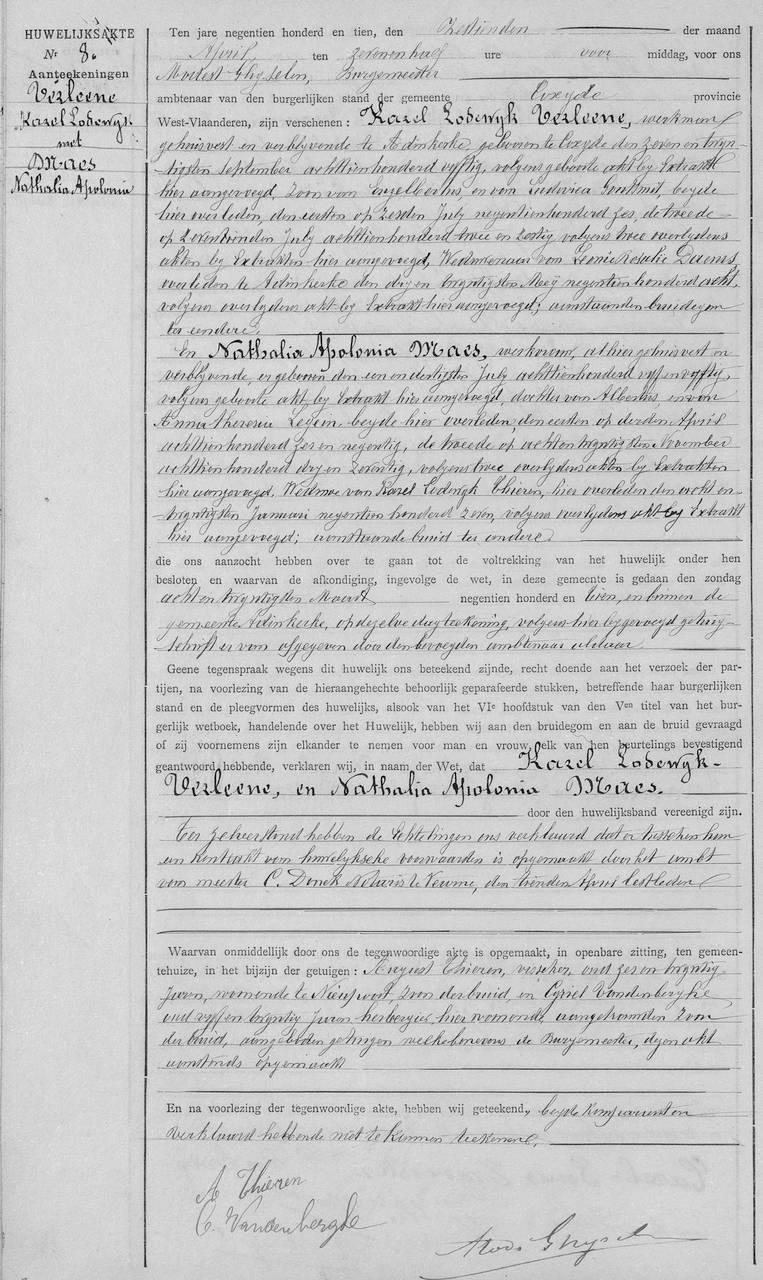 HUWELIJKSAKTE
Nr 8.
Aanteekeningen
Verleene
Karel Lodewijk
met
Maes
Nathalia Apolonia
Ten jare negentien honderd en tien, den Zestienden der maand
April, ten zevenenhalf ure voor middag, voor ons
Modest Ghyselen, Burgemeester
ambtenaar van den burgerlijken stand der gemeente Coxyde provincie
West-Vlaanderen, zijn verschenen : Karel Lodewyk Verleene, werkman
gehuisvest en verblyvende te Adinkerke, geboren te Coxyde den zeven en twyn-
tigsten September achttienhonderd vyftig, volgens geboorte akt by Extrakt
hier aangevoegd, Zoon van Engelbertus, en van Ludovica, beyde
hier overleden, den eersten op zesden July negentienhonderd zes, de tweede
op zeventienden July achttienhonderd twee en zestig volgens twee overlydens
akten by Extrakten hier aangevoegd, Weduwenaar van Leonie Rosalie Daems
overleden te Adinkerke den dry en twyntigsten Meij negentien honderd acht,
volgens overlydens akt by Extrakt hier aangevoegd; aanstaanden bruidegom
ter eendere;
En Nathalia Apolonia Maes, werkvrouw, alhier gehuisvest en
verblyvende, er geboren den een en dertigsten July achttienhonderd vyf en vyftig,
volgens geboorte akt by Extrakt hier aangevoegd, dochter van Albertus, en van
Anna Theresia Legein beyde hier overleden, den eersten op derden April
achttienhonderd zes en negentig, de tweede op acht en twyntigsten November
achttien honderd dry en zeventig, volgens twee overlydens akten by Extrakten
hier aangevoegd, Weduwe van Karel Lodewyk Thieren, hier overleden den acht en
twyntigsten Januari negentien honderd zeven, volgens overlydens akt by Extrakt
hier aangevoegd; aanstaande bruid ter andere
die ons aanzocht hebben over te gaan tot de voltrekking van het huwelijk onder hen
besloten en waarvan de afkondiging, ingevolge de wet, in deze gemeente is gedaan den zondag
acht en twyntigsten Maart negentien honderd en tien, en binnen de
gemeente Adinkerke, op dezelve dagteekening, volgens hier bygevoegd getuig-
schrift er van afgegeven door den bevoegden ambtenaar aldaar
Geene tegenspraak wegens dit huwelijk ons beteekend zijnde, recht doende aan het verzoek der par-
tijen, na voorlezing van de hieraangehechte behoorlijk geparafeerde stukken, betreffende haar burgerlijken
stand en de pleegvormen des huwelijks, alsook van het VIe hoofdstuk van den Ven titel van het bur-
gerlijk wetboek, handelende over het Huwelijk, hebben wij aan den bruidegom en aan de bruid gevraagd
of zij voornemens zijn elkander te nemen voor man en vrouw, elk van hen beurtelings bevestigend
geantwoord hebbende, verklaren wij, in naam der Wet, dat Karel Lodewyk-
Verleene, en Nathalia Apolonia Maes.
door den huwelijksband vereenigd zijn.
Ter zelverstond hebben de Echtelingen ons verklaard dat er tusschen hun
een kontrakt van huwelyksche voorwaarden is opgemaakt door het ambt
van meester C. Donck Notaris te Veurne, den tienden April lestleden
Waarvan onmiddelijk door ons de tegenwoordige akte is opgemaakt, in openbare zitting, ten gemeen-
tehuize, in het bijzijn der getuigen : August Thieren, visscher, oud zes en twyntig
Jaren, woonende te Nieupoort, Zoon der bruid, en Cyriel Vandenberghe
oud vyf en twyntig Jaren herbergier, hier woonende, aangetrouwden Zoon
der bruid, aangeboden getuigen welke benevens de Burgemeester, dezen akt
aanstonds opgemaakt
En na voorlezing der tegenwoordige akte, hebben wij geteekend, beyde komparanten
verklaard hebbende niet te kunnen teekenen.
A Thieren
C. Vandenberghe
Mod. Ghysel